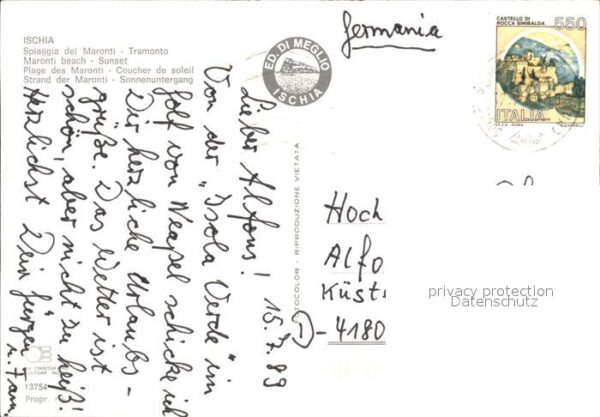 ISCHIA
Spiaggia dei Maronti - Tramonto
Maronti beach - Sunset
Plage des Maronti - Coucher de soleil
Strand der Maronti - Sonnenuntergang
ED. DI MEGLIO
ISCHIA
Germania
CASTELLO DI
ROCCA SINIBALDA
550
ITALIA
15.7.89
Lieber Alfons!
Von der "Isola Verde" im
Golf von Neapel schicke ich
Dir herzliche Urlaubs-
grüße. Das Wetter ist
schön, aber nicht zu heiß!
Herzlichst Dein Jürgen
u. Fam
RIPRODUZIONE VIETATA
Hoch
Alfo
Küst
D-4180
privacy protection
Datenschutz
13754
Propr.